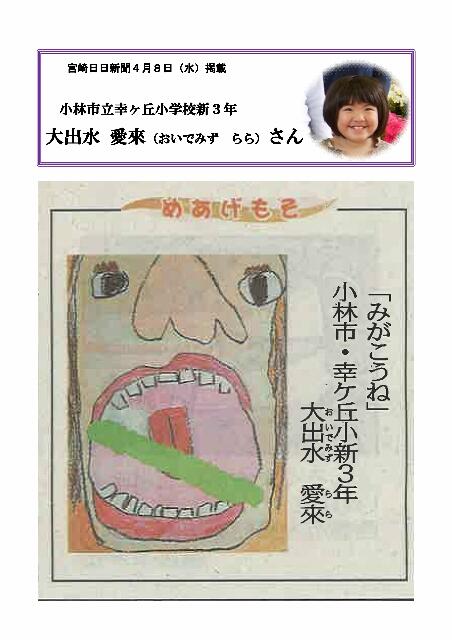 宮崎日日新聞４月８日（水）掲載
小林市立幸ヶ丘小学校新３年
大出水 愛來（おいでみず らら）さん
めあげもそ
「みがこうね」
小林市・幸ケ丘小新３年
大出水 愛來
おいでみず らら